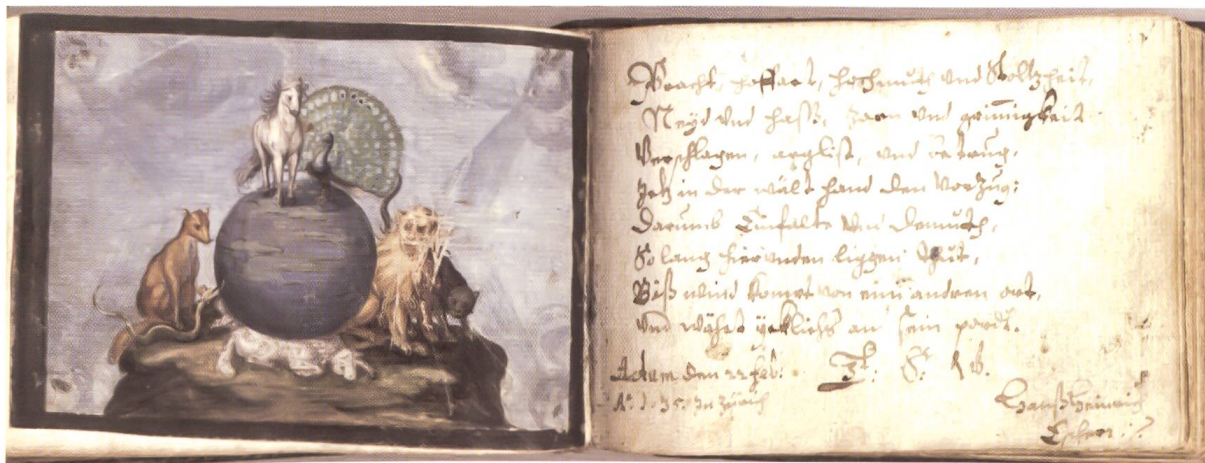 Bracht, Hoffart, Hochmuth und Stoltzheit,
Neyd und Hasß, Zorn und grimigkeit
Verschlagen, arglist, und betrug,
Jetz in der wält hand den Vorzug:
Darumb Einfalt und Demuth,
So lang hierunden liggen thut,
Biß wind komt von eim andren ort,
und wäyet yetlichs an sein port.
Actum den 22 feb:
A°. 1 35: In Zürich
Hanß Heinrich